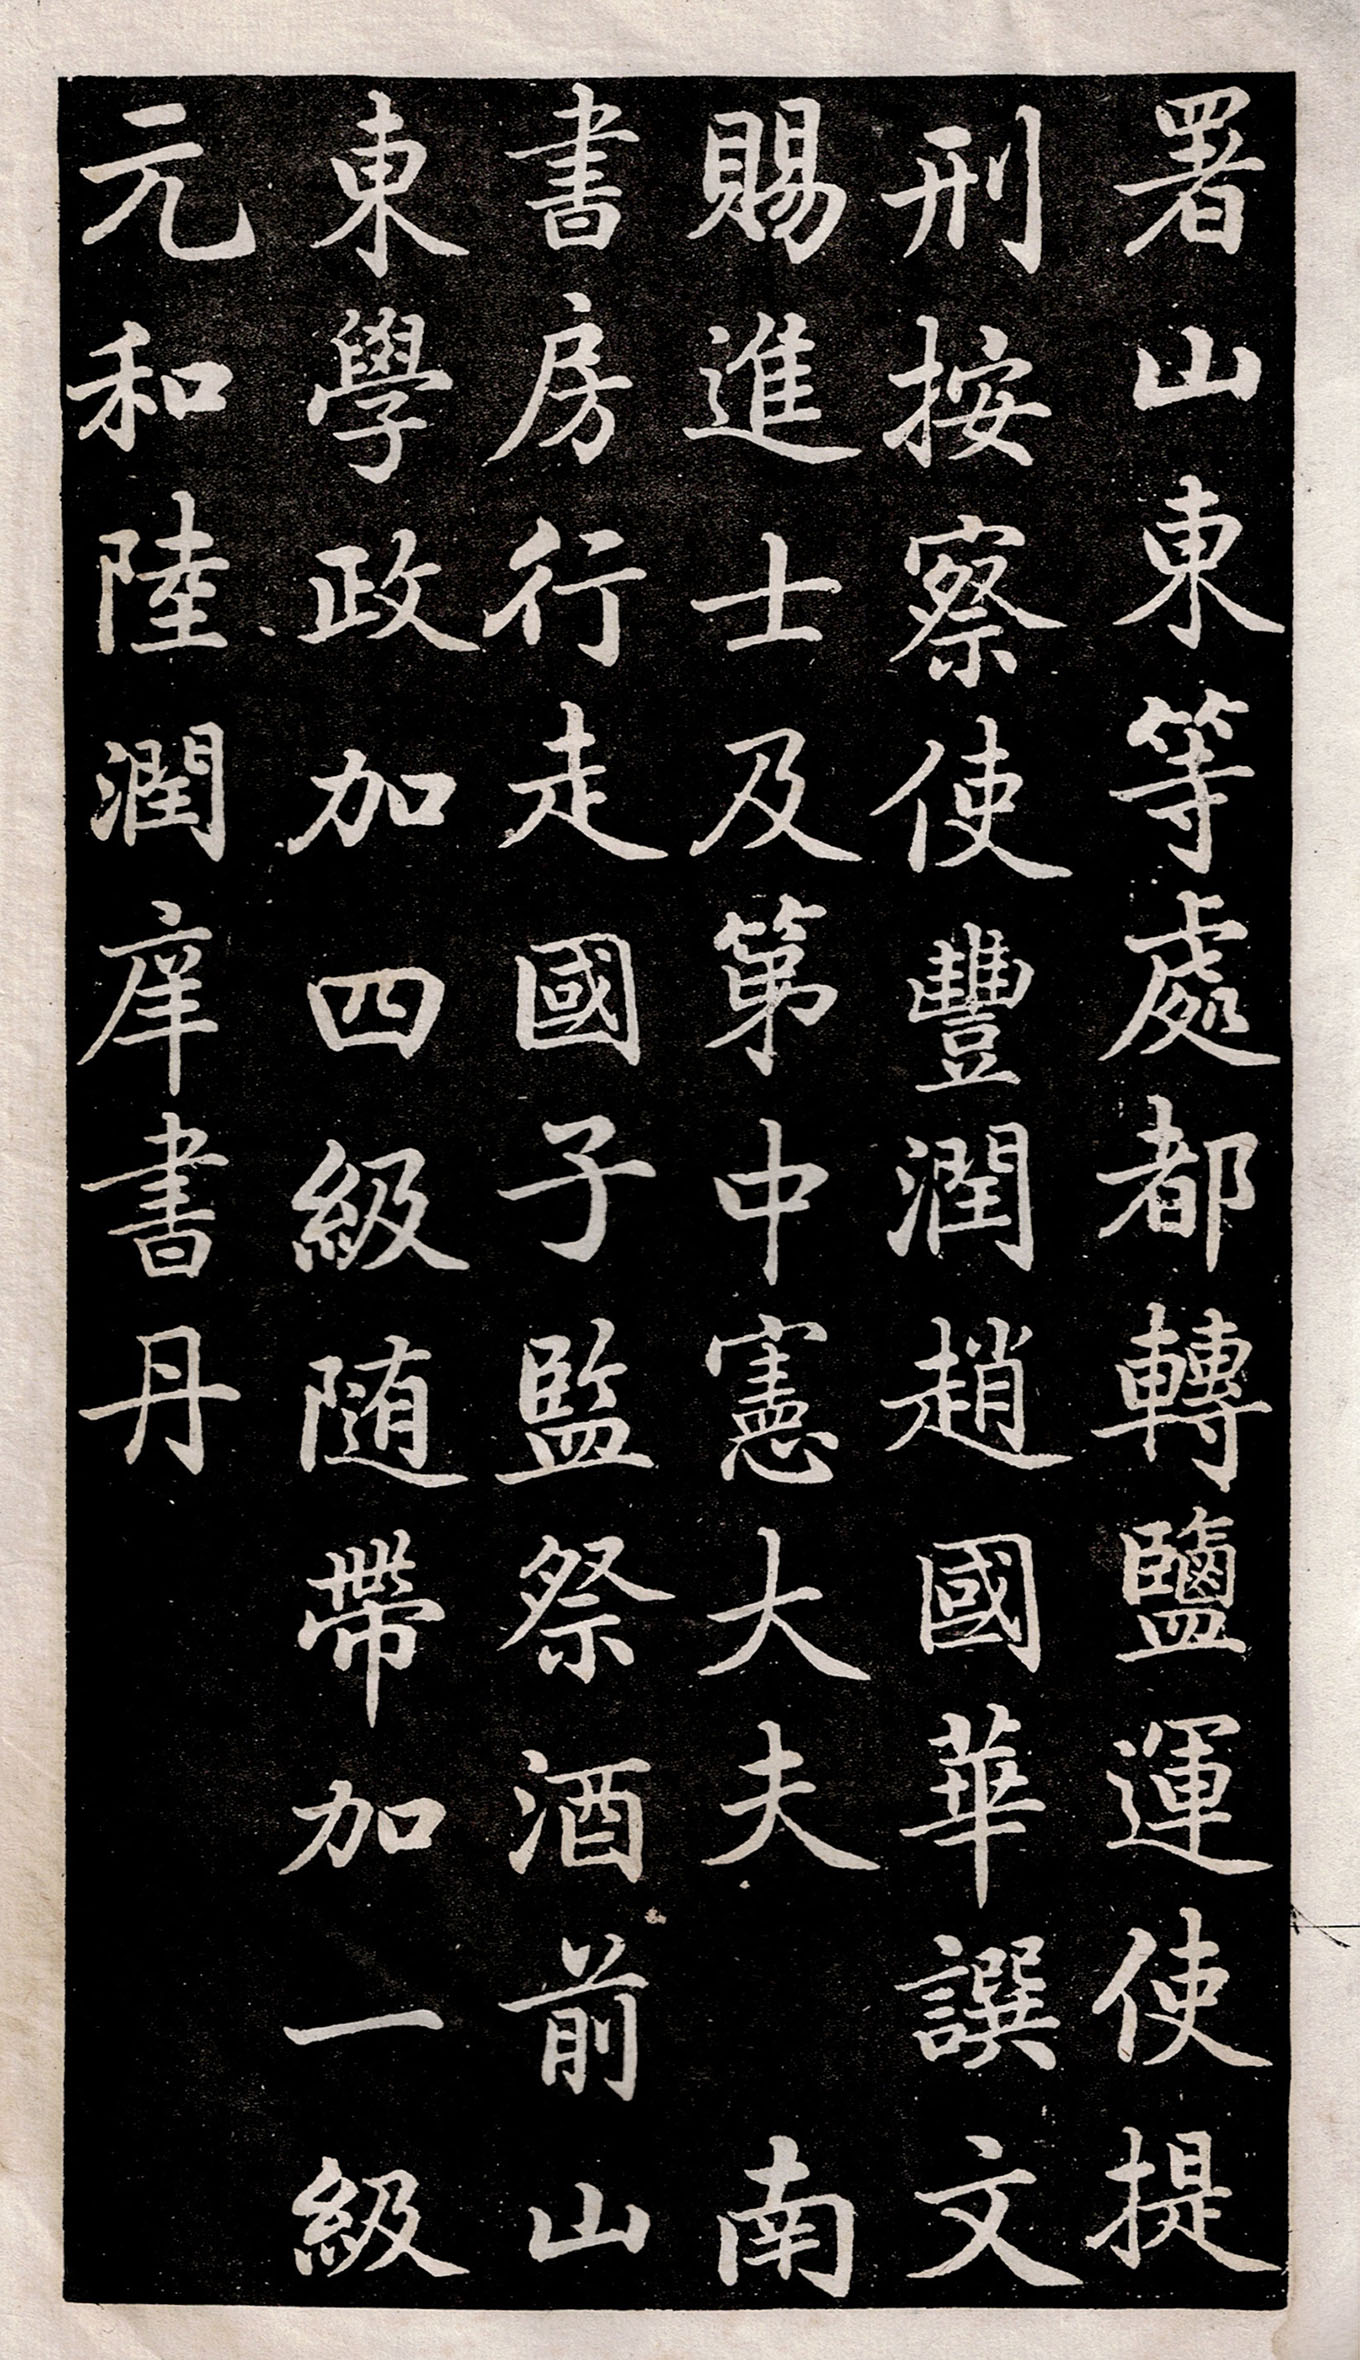 署山東等處都轉鹽運使提
刑按察使豐潤趙國華譔文
賜進士及第中憲大夫　南
書房行走國子監祭酒前山
東學政加四級随帶加一級
元和陸潤庠書丹